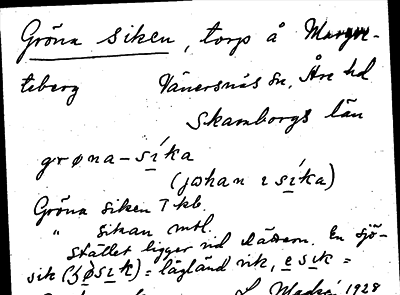 Gröna siken, torp å Margre-
teberg Vänersnäs sn, Åse hd
Skaraborgs län
grøna-síka
(jɷhan ɪ síka)
Gröna siken 7 kb.
" sikan mtl.
Stället ligger vid Dättern. En sjö-
sik (søsik) = lågländ vik, e sik =
1928